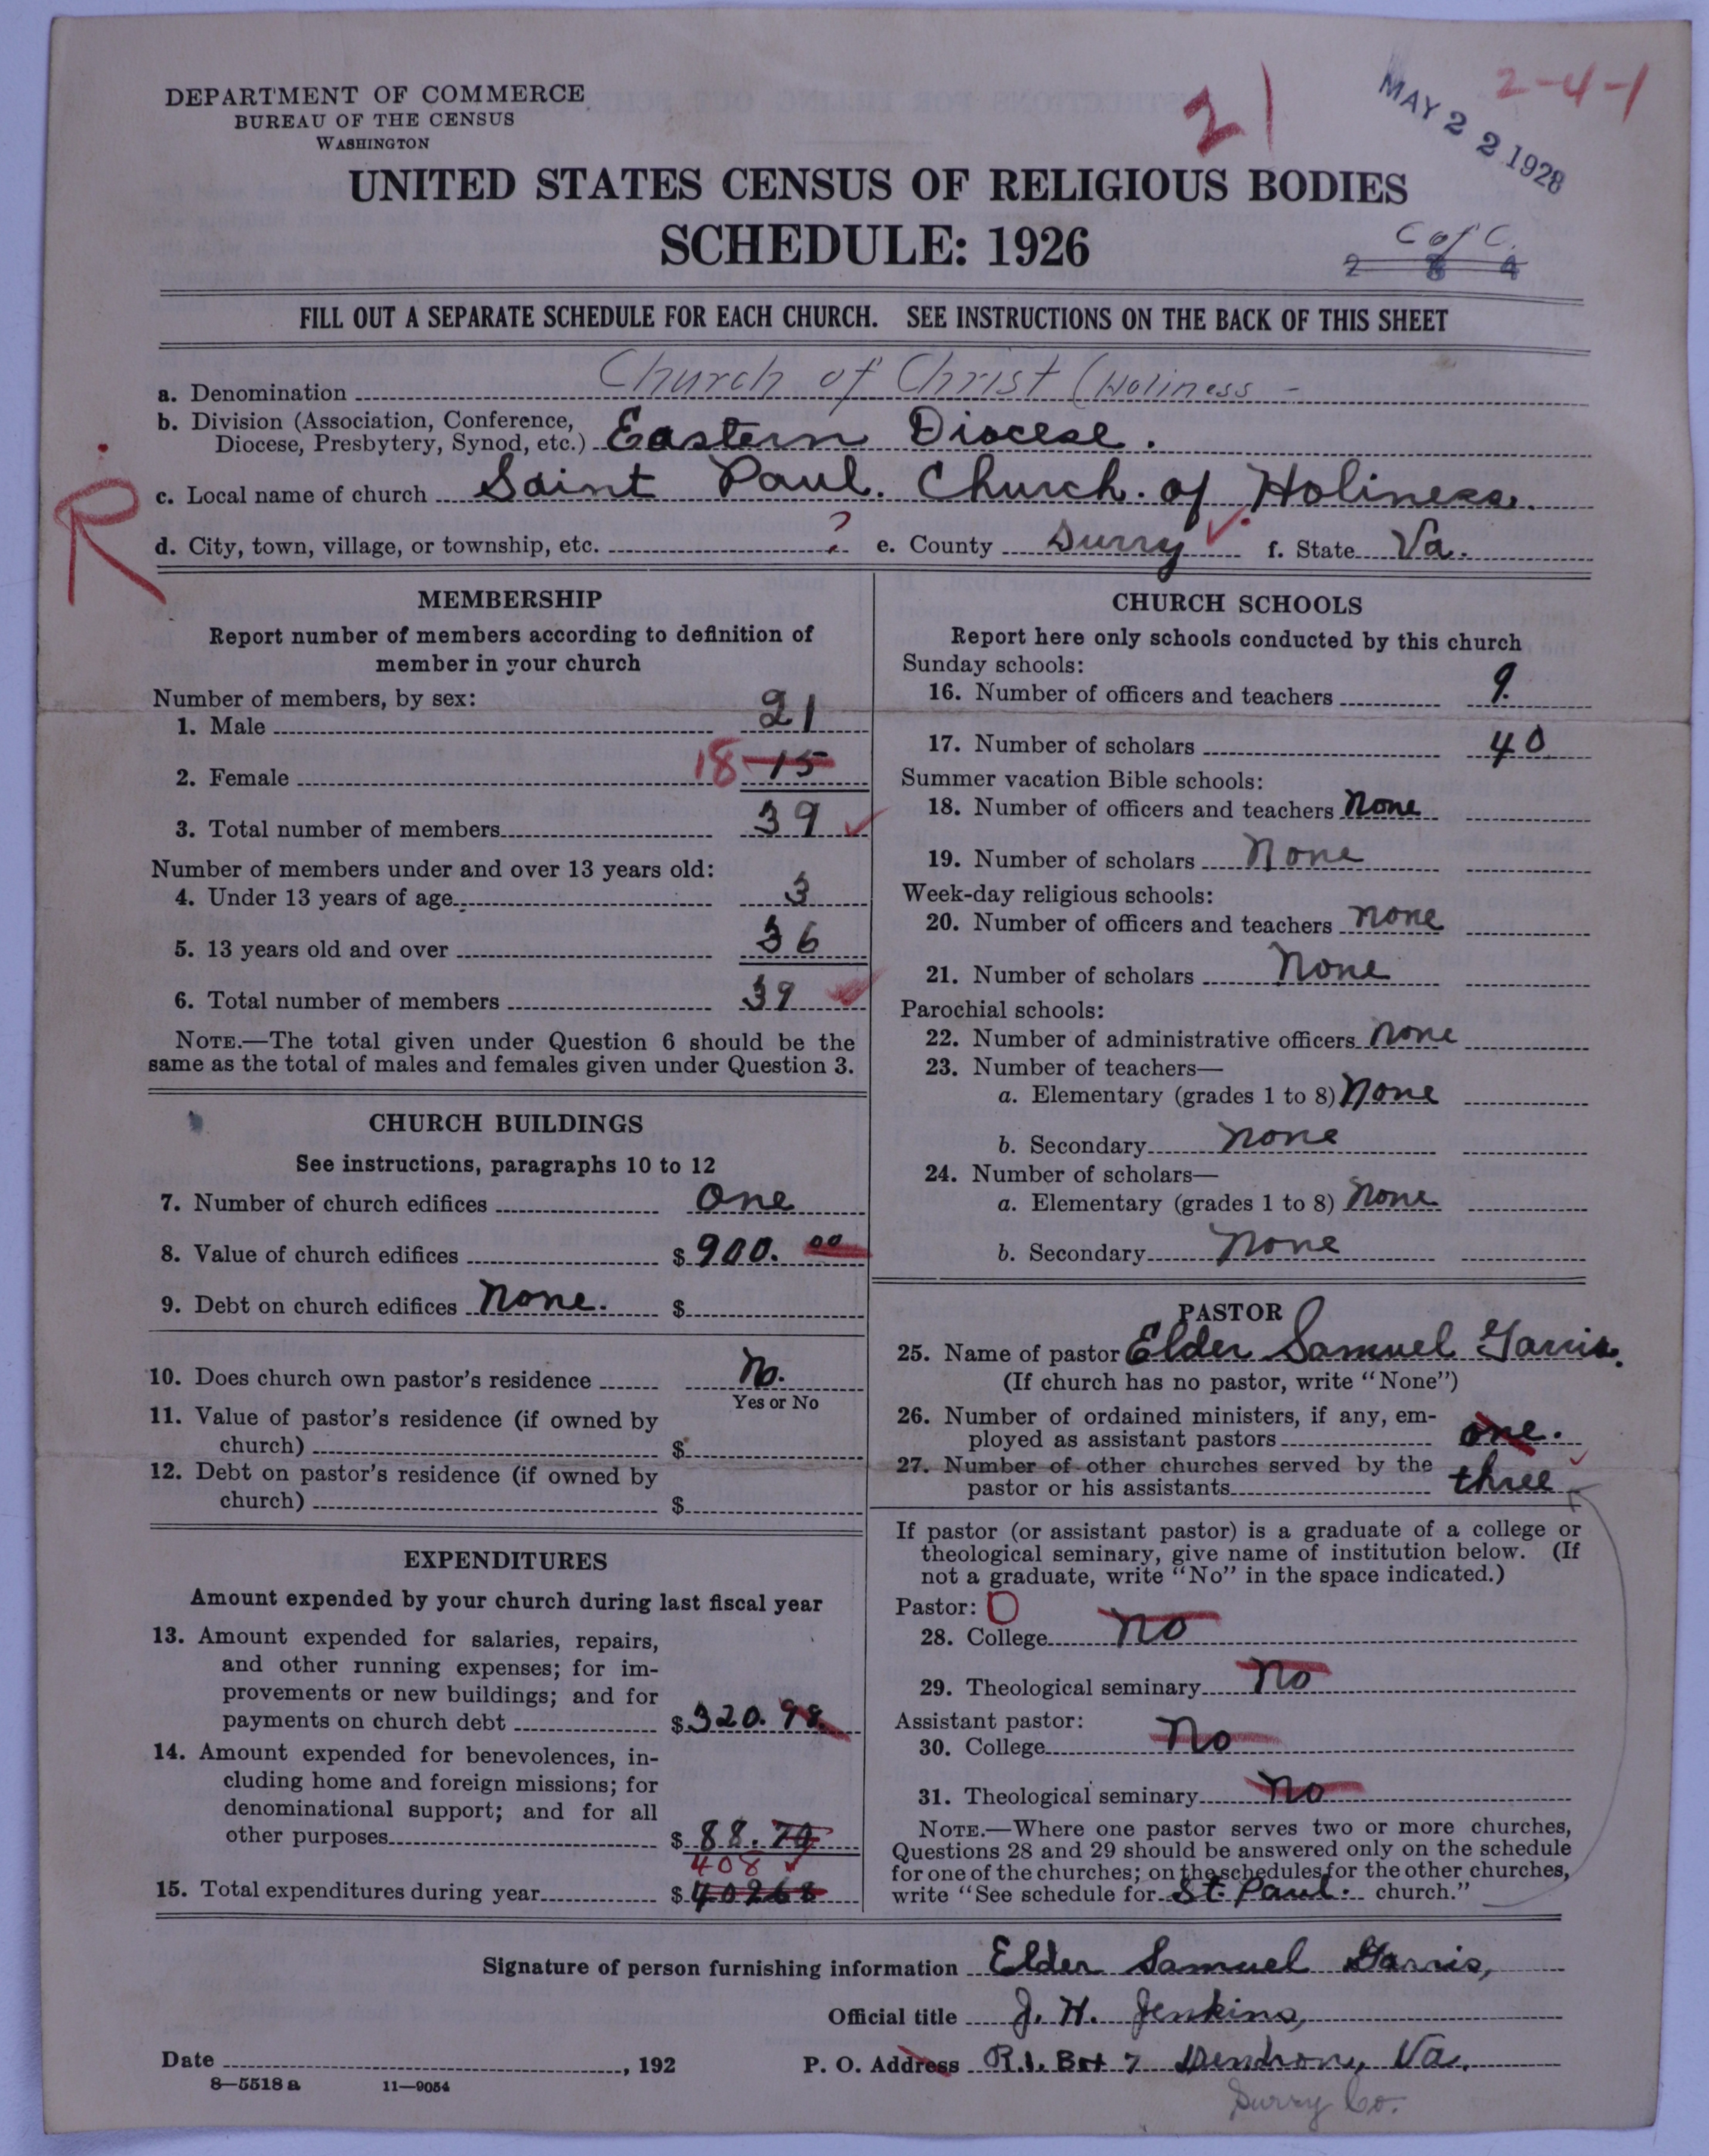 DEPARTMENT OF COMMERCE
BUREAU OF THE CENSUS
WASHINGTON
21
MAY 22 1928
2-4-1
UNITED STATES CENSUS OF RELIGIOUS BODIES
SCHEDULE: 1926
C of C.
2 8 4
FILL OUT A SEPARATE SCHEDULE FOR EACH CHURCH. SEE INSTRUCTIONS ON THE BACK OF THIS SHEET
a. Denomination Church of Christ (Holiness -
b. Division (Association, Conference,
Diocese, Presbytery, Synod, etc.) Eastern Diocese.
R
c. Local name of church Saint Paul. Church. of Holiness.
d. City, town, village, or township, etc. ? e. County Surry f. State Va.
MEMBERSHIP
Report number of members according to definition of
member in your church
Number of members, by sex:
1. Male 21
2. Female 18 15
3. Total number of members 39
Number of members under and over 13 years old:
4. Under 13 years of age 3
5. 13 years old and over 36
6. Total number of members 39
NOTE.—The total given under Question 6 should be the
same as the total of males and females given under Question 3.
CHURCH BUILDINGS
See instructions, paragraphs 10 to 12
7. Number of church edifices one
8. Value of church edifices $ 900.00
9. Debt on church edifices None. $
10. Does church own pastor's residence No.
Yes or No
11. Value of pastor's residence (if owned by
church) $
12. Debt on pastor's residence (if owned by
church) $
EXPENDITURES
Amount expended by your church during last fiscal year
13. Amount expended for salaries, repairs,
and other running expenses; for im-
provements or new buildings; and for
payments on church debt $ 320.98
14. Amount expended for benevolences, in-
cluding home and foreign missions; for
denominational support; and for all
other purposes $ 88.70
408
15. Total expenditures during year $ 40268
CHURCH SCHOOLS
Report here only schools conducted by this church
Sunday schools:
16. Number of officers and teachers 9.
17. Number of scholars 40
Summer vacation Bible schools:
18. Number of officers and teachers None
19. Number of scholars None
Week-day religious schools:
20. Number of officers and teachers none
21. Number of scholars None
Parochial schools:
22. Number of administrative officers none
23. Number of teachers—
a. Elementary (grades 1 to 8) None
b. Secondary none
24. Number of scholars—
a. Elementary (grades 1 to 8) None
b. Secondary None
PASTOR
25. Name of pastor Elder Samuel Garris.
(If church has no pastor, write "None")
26. Number of ordained ministers, if any, em-
ployed as assistant pastors one.
27. Number of other churches served by the
pastor or his assistants three
If pastor (or assistant pastor) is a graduate of a college or
theological seminary, give name of institution below. (If
not a graduate, write "No" in the space indicated.)
Pastor: 0
28. College No
29. Theological seminary No
Assistant pastor:
30. College No
31. Theological seminary No
NOTE.—Where one pastor serves two or more churches,
Questions 28 and 29 should be answered only on the schedule
for one of the churches; on the schedules for the other churches,
write "See schedule for St. Paul. church."
Signature of person furnishing information Elder Samuel Garris,
Official title J. H. Jenkins,
Date , 192 P. O. Address R.1. Box 7 Dendron, Va.
8—5518 a 11—9054
Surry Co.